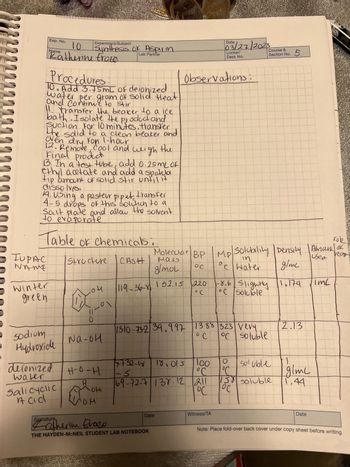 Exp. No. 10
Experiment/Subject Synthesis of Aspirin
Date 03/27/202
Name Katherine Erazo
Lab Partner
Locker/Desk No.
Course & Section No. 5
Procedures:
Observations:
10. Add 3.75mL of deionized
water per gram of solid Heat
and continue to stir
11. Transfer the beaker to a ice
bath. Isolate the product and
suction for 10 minutes, transfer
the solid to a clean beaker and
oven dry for 1-hour
12. Remove, cool and weigh the
Final product
13. In a test tube, add 0.25mL of
ethyl acetate and add a spatula
tip amount of solid stir until it
dissolves.
14. Using a pasteur pipet, transfer
4-5 drops of this solution to a
salt plate and allow the solvent
to evaporate
Table of chemicals:
IUPAC Name
Structure
CAS#
Molecular Mass g/mol
BP °C
MP °C
Solubility in water
Density g/mL
Amount used
Winter green
OH
O
O
119-36-8
152.15
220 °C
-8.6 °C
Slightly soluble
1.174
1mL
Sodium Hydroxide
Na-OH
1310-732
39.997
1388 °C
323 °C
very soluble
2.13
deionized water
H-O-H
7732-18-5
18.015
100 °C
0 °C
soluble
1 g/mL
Salicyclic Acid
OH
OH
69-72-7
138.12
211 °C
158 °C
soluble
1.44
Signature Katherine Erazo
Date
Witness/TA
Date
THE HAYDEN-McNEIL STUDENT LAB NOTEBOOK
Note: Place fold-over back cover under copy sheet before writing